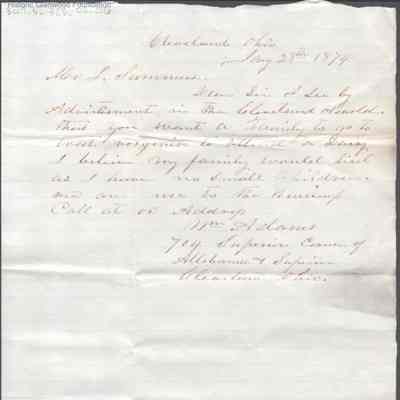 Historic Glenwood Foundation
Cleveland Ohio
May 28th 1879
Mr L. Summers
Dear Sir I See by
Advirtisment in the Cleveland Herald
that you want a family to go to
West virginia to attend a Dairy
I believe my family would suit
as I have no small children
we are use to the
Call at or Address
Wm Adams
704 Superior Corner of
Allabama & Superior
Cleveland Ohio